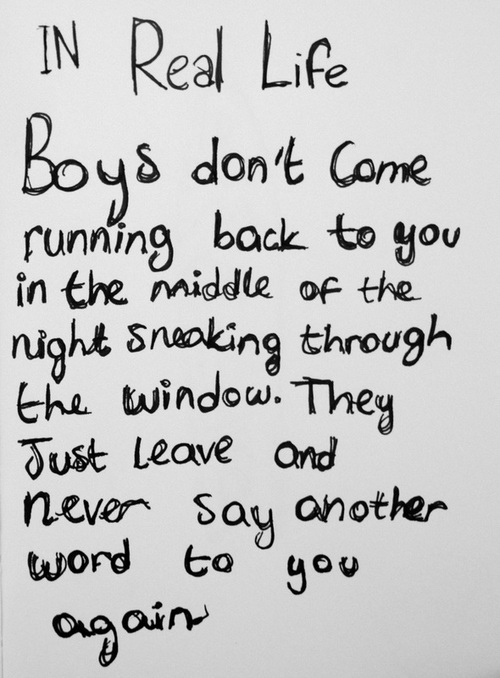 IN Real Life
Boys don't Come
running back to you
in the middle of the
night sneaking through
the window. They
Just Leave and
never say another
word to you
again